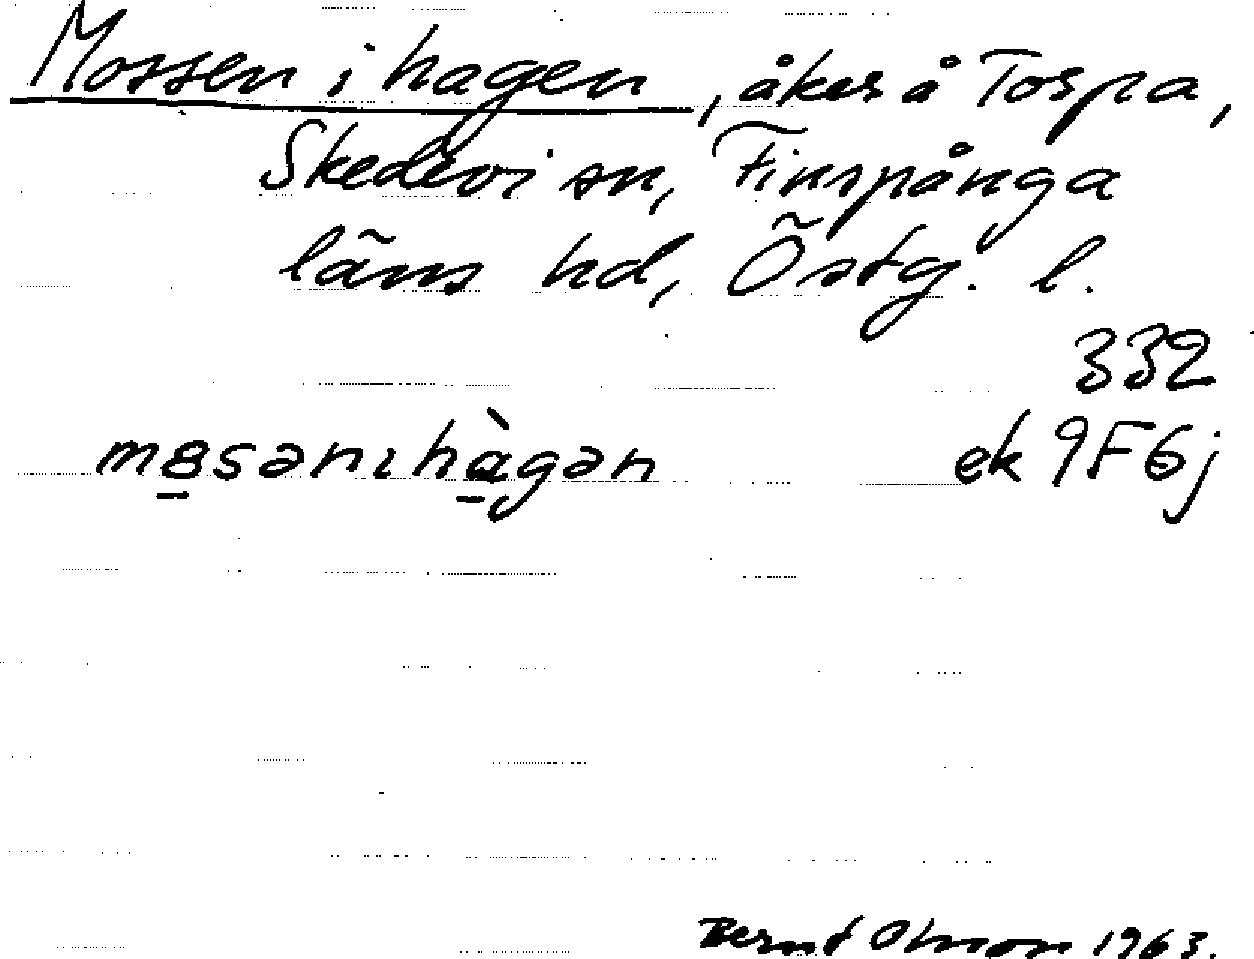 Mossen i hagen, åker å Torpa,
Skedevi sn, Finspånga
läns hd, Östg. l.
332
mɞsənıhàgən ek 9F6j
Bernt Olsson 1963.